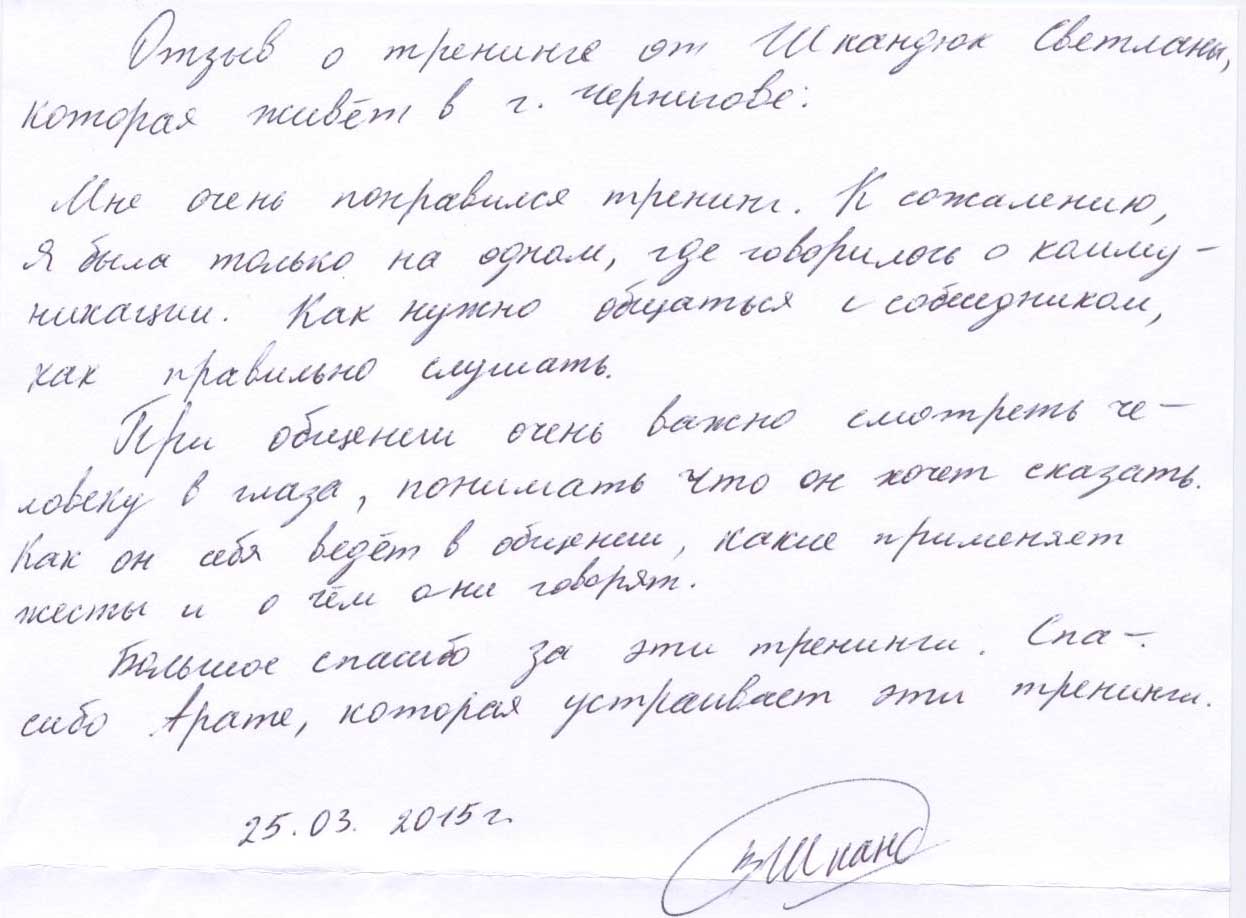 Отзыв о тренинге от Шкандюк Светланы,
которая живёт в г. Чернигове:
Мне очень понравился тренинг. К сожалению,
я была только на одном, где говорилось о комму-
никации. Как нужно общаться с собеседником,
как правильно слушать.
При общении очень важно смотреть че-
ловеку в глаза, понимать что он хочет сказать.
Как он себя ведёт в общении, какие применяет
жесты и о чём они говорят.
Большое спасибо за эти тренинги. Спа-
сибо Арате, которая устраивает эти тренинги.
25.03.2015г.